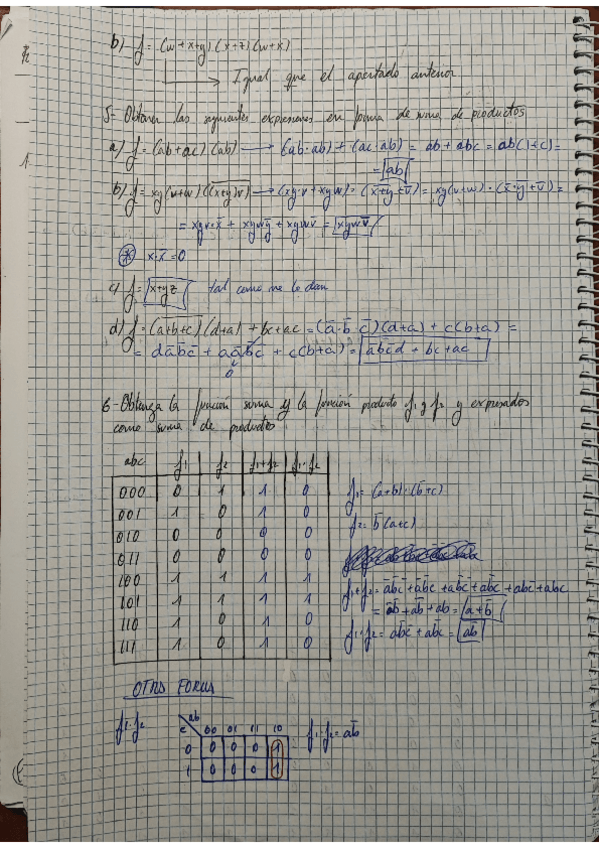 b) f = (w+x+y)(x+z)(w+x)
Igual que el apartado anterior
5- Obtener las siguientes expresiones en forma de suma de productos
a) f = (ab+ac)(ab) → (ab·ab) + (ac·ab) = ab + abc = ab(1+c) =
= ab
b) f = xy(v+w)(\overline{(x+y)v}) → (xy·v + xyw)·(\overline{x+y}+v̄) = xy(v+w)·(x̄·ȳ+v̄) =
= xyv·x̄ + xywȳ + xywv̄ = xywv̄
* x·x̄=0
c) f = x+yz tal como me lo dan
d) f = (\overline{a+b+c})(d+a) + bc+ac = (ā·b̄·c̄)(d+a) + c(b+a) =
= dāb̄c̄ + aāb̄c̄ + c(b+a) = āb̄c̄d + bc+ac
0
6- Obtenga la función suma y la función producto f1 y f2 y expresados
como suma de productos
abc f1 f2 f1+f2 f1·f2
000 0 1 1 0
001 1 0 1 0
010 0 0 0 0
011 0 0 0 0
100 1 1 1 1
101 1 1 1 1
110 1 0 1 0
111 1 0 1 0
f1= (a+b)·(b̄+c)
f2= b̄(a+c)
f1+f2= āb̄c̄ + āb̄c + ab̄c̄ + ab̄c + abc̄ + abc
= āb̄ + ab̄ + ab = a+b̄
f1·f2 = ab̄c̄ + ab̄c = ab̄
OTRA FORMA
f1·f2
ab
c 00 01 11 10
0 0 0 0 1
1 0 0 0 1
f1·f2 = ab̄